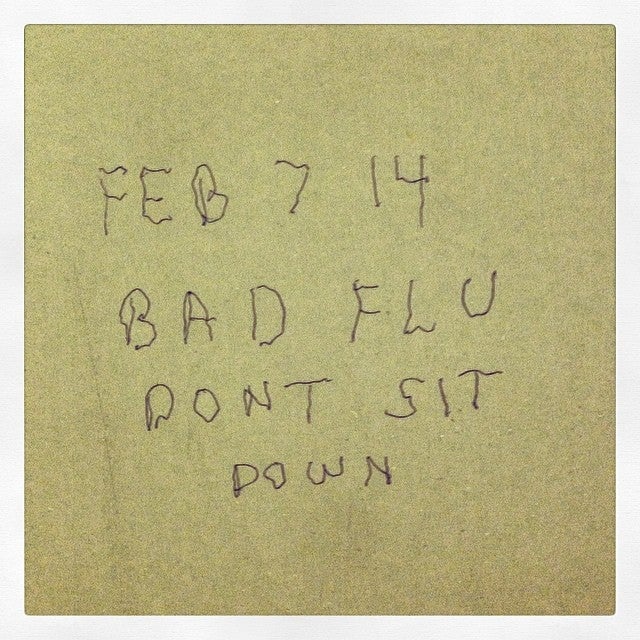 FEB 7 14
BAD FLU
DONT SIT
DOWN